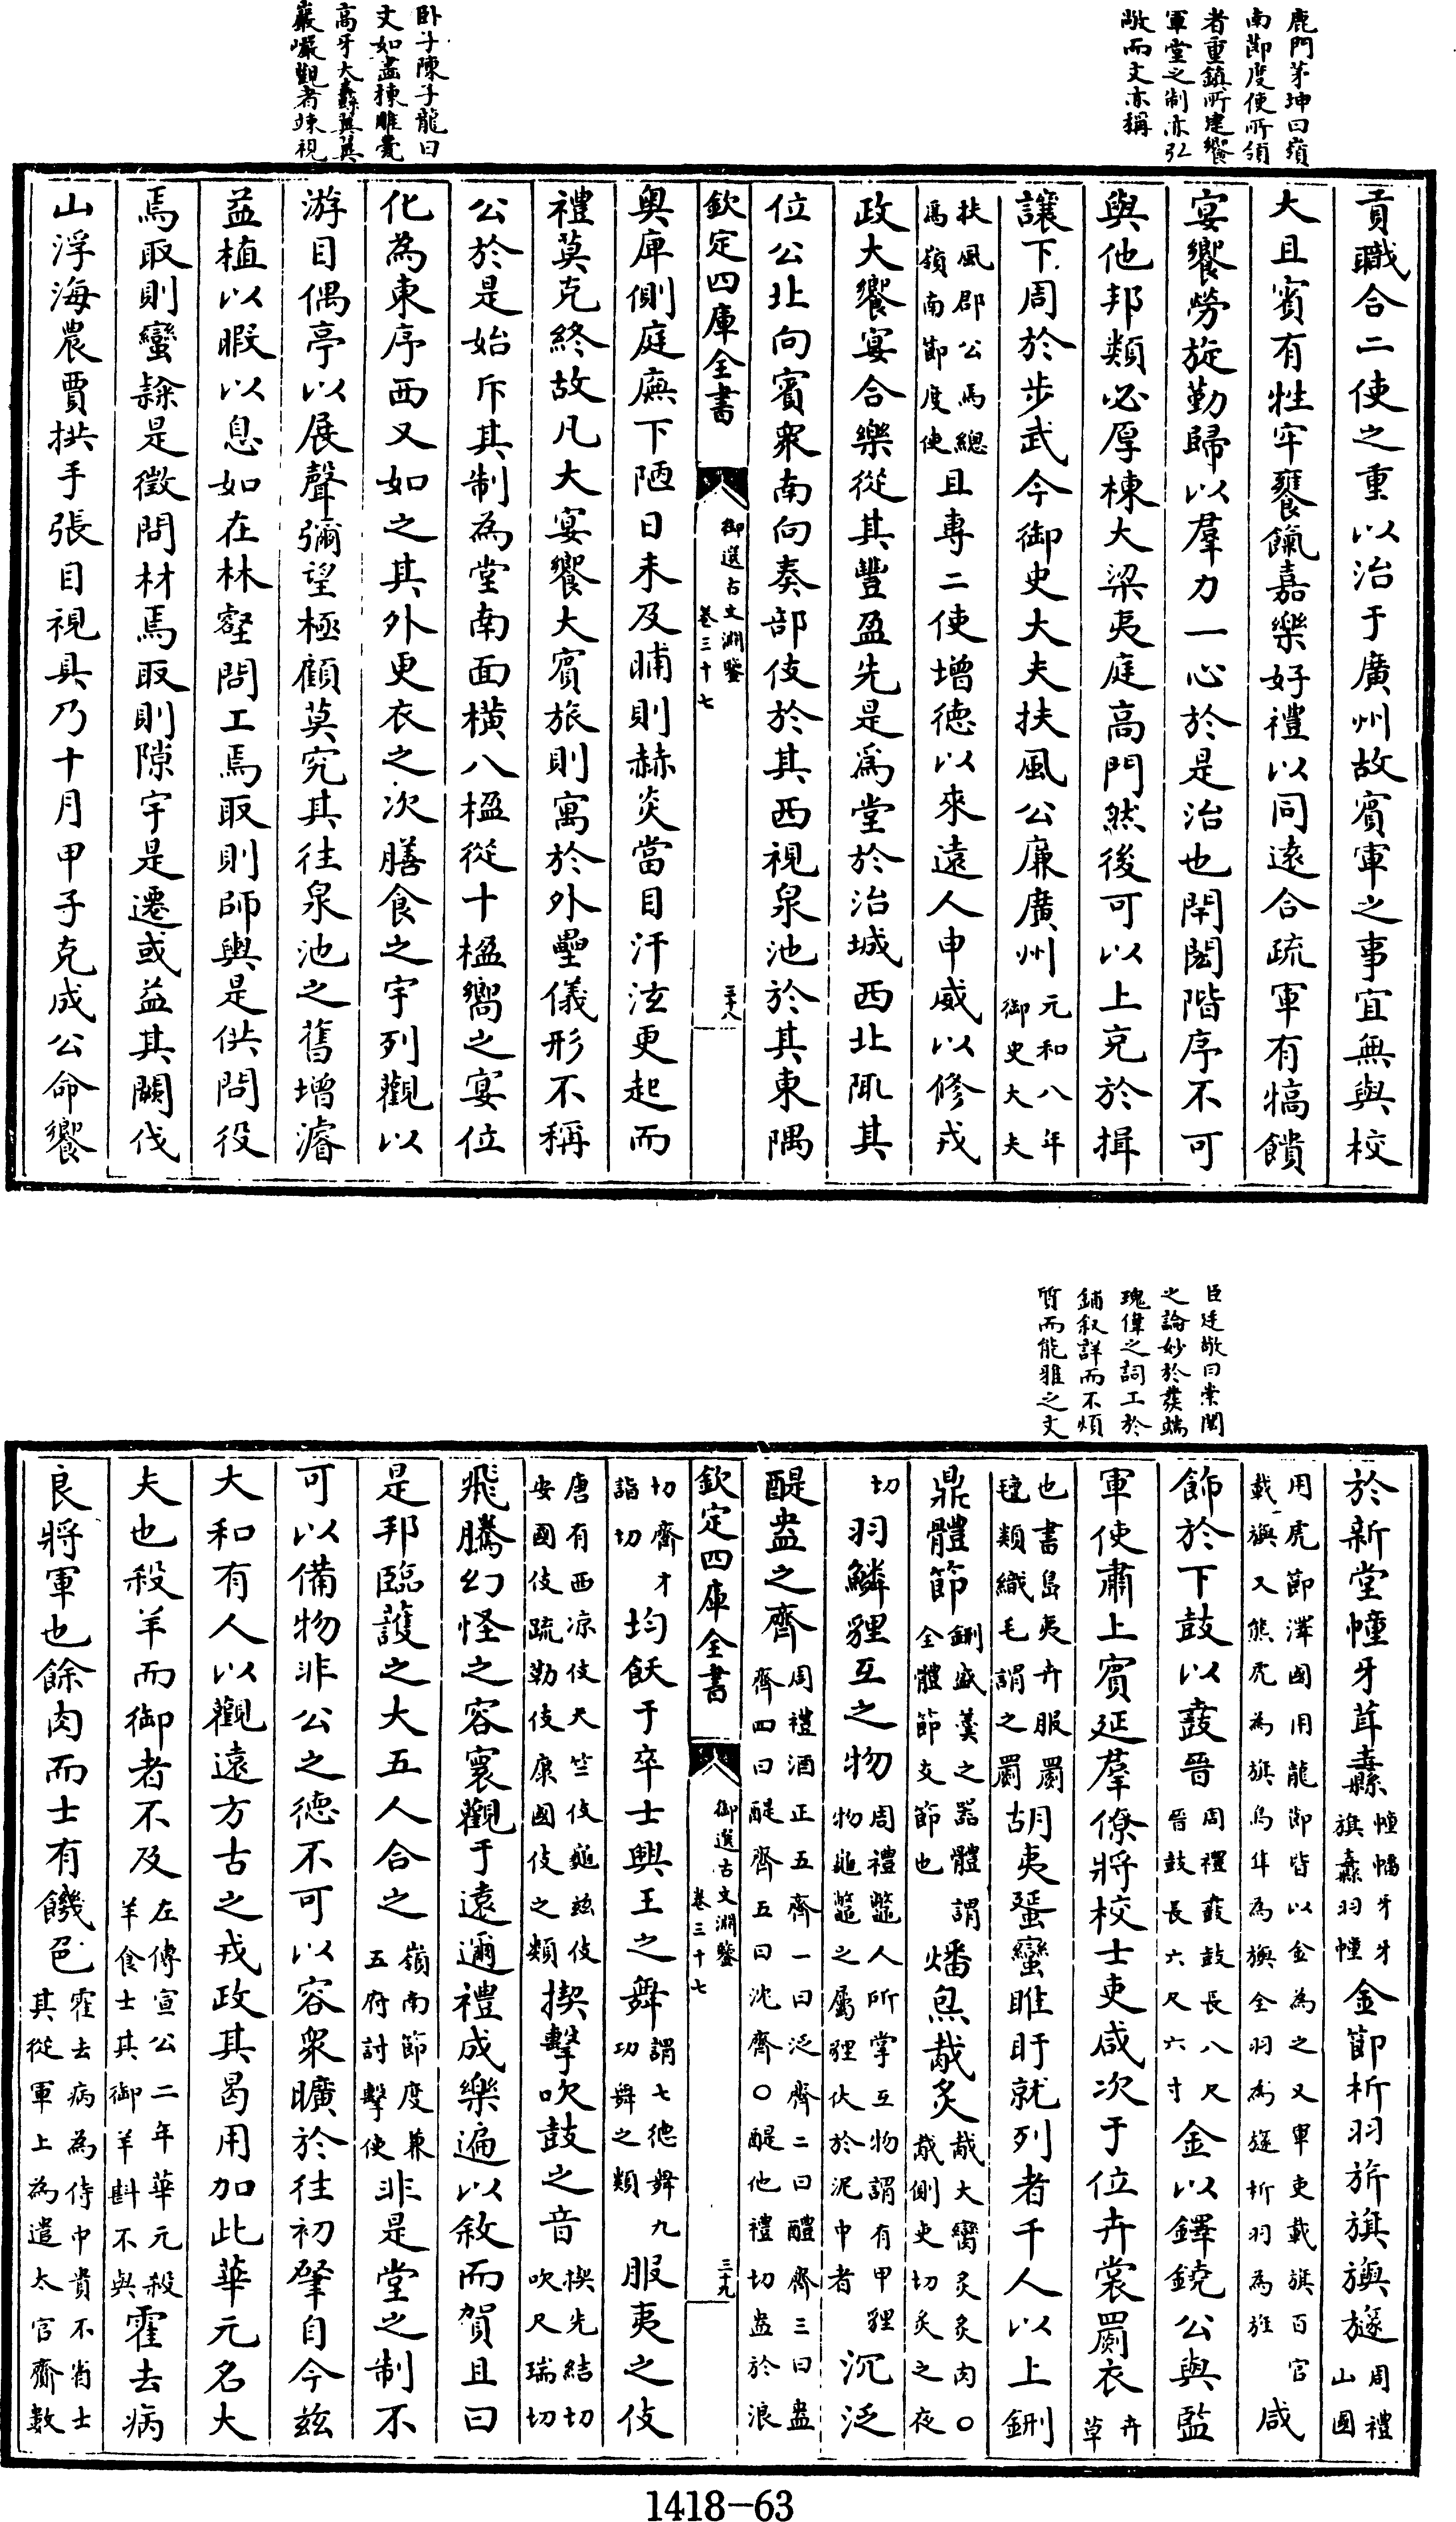 鹿門茅坤曰嶺
南節度使所領
者重鎮所建饗
軍堂之制亦弘
敞而文亦稱
卧子陳子龍曰
文如畫棟雕甍
高牙大纛翼翼
巖巖觀者竦視
貢職合二使之重以治于廣州故賓軍之事宜無與校
大且賓有牲牢饔餼嘉樂好禮以同遠合疏軍有犒饋
宴饗勞旋勤歸以羣力一心於是治也閈閎階序不可
與他邦類必厚棟大梁夷庭高門然後可以上充於揖
讓下周於步武今御史大夫扶風公廉廣州元和八年御史大夫
扶風郡公馬總為嶺南節度使且專二使增德以來遠人申威以修戎
政大饗宴合樂從其豐盈先是爲堂於治城西北陬其
位公北向賓衆南向奏部伎於其西視泉池於其東隅
欽定四庫全書 御選古文淵鑒 卷三十七 三十八
奥庫側庭廡下陋日未及晡則赫炎當目汗泫更起而
禮莫克終故凡大宴饗大賓旅則寓於外壘儀形不稱
公於是始斥其制為堂南面横八楹從十楹嚮之宴位
化為東序西又如之其外更衣之次膳食之宇列觀以
游目偶亭以展聲彌望極顧莫究其往泉池之舊增濬
益植以暇以息如在林壑問工焉取則師輿是供問役
焉取則蠻隸是徵問材焉取則隙宇是遷或益其闕伐
山浮海農賈拱手張目視具乃十月甲子克成公命饗
臣廷敬曰崇閎
之論妙於發端
瑰偉之詞工於
鋪叙詳而不煩
質而能雅之文
於新堂幢牙茸纛幢幡牙牙旗纛羽幢金節析羽旂旗旟旞周禮山國
用虎節澤國用龍節皆以金為之又軍吏載旗百官載旟又熊虎為旗鳥隼為旟全羽為旞析羽為旌咸
飾於下鼓以鼖晉周禮鼖鼓長八尺晉鼓長六尺六寸金以鐸鐃公與監
軍使肅上賓延羣僚將校士吏咸次于位卉裳罽衣卉草
也書島夷卉服罽㲲類織毛謂之罽胡夷蜑蠻睢盱就列者千人以上鉶
鼎體節鉶盛羹之器體謂全體節支節也燔炰胾炙胾大臠炙炙肉〇胾側吏切炙之夜
切羽鱗貍互之物周禮鼈人所掌互物謂有甲貍物龜鼈之屬貍伏於泥中者沉泛
醍盎之齊周禮酒正五齊一曰泛齊二曰醴齊三曰盎齊四曰醍齊五曰沈齊〇醍他禮切盎於浪
欽定四庫全書 御選古文淵鑒 卷三十七 三十九
切齊才詣切均飫于卒士興王之舞謂七德舞九功舞之類服夷之伎
唐有西凉伎天竺伎龜兹伎安國伎疏勒伎康國伎之類揳擊吹鼓之音揳先結切吹尺瑞切
飛騰幻怪之容寰觀于遠邇禮成樂遍以敘而賀且曰
是邦臨護之大五人合之嶺南節度兼五府討擊使非是堂之制不
可以備物非公之德不可以容衆曠於往初肇自今兹
大和有人以觀遠方古之戎政其曷用加此華元名大
夫也殺羊而御者不及左傳宣公二年華元殺羊食士其御羊斟不與霍去病
良將軍也餘肉而士有饑色霍去病為侍中貴不省士其從軍上為遣太官齎數
1418-63